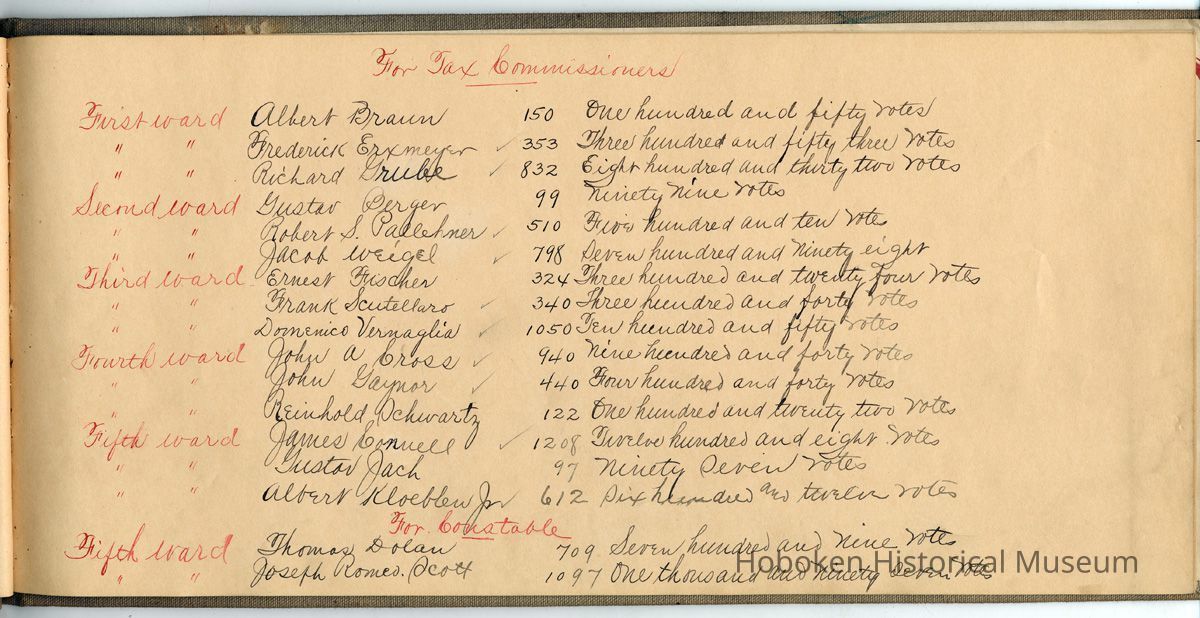 For Tax Commissioners
First ward Albert Braun 150 One hundred and fifty votes
" " Frederick Erxmeyer ✓ 353 Three hundred and fifty three votes
" " Richard Grube ✓ 832 Eight hundred and thirty two votes
Second ward Gustav Berger 99 Ninety Nine votes
" " Robert S. ✓ 510 Five hundred and ten votes
" " Jacob Weigel ✓ 798 Seven hundred and Ninety eight
Third ward Ernest Fischer 324 Three hundred and twenty four votes
" " Frank Scutellaro ✓ 340 Three hundred and forty votes
" " Domenico Vernaglia ✓ 1050 Ten hundred and fifty votes
Fourth ward John A Cross ✓ 940 Nine hundred and forty votes
" " John Gaynor ✓ 440 Four hundred and forty votes
" " Reinhold Schwartz 122 One hundred and twenty two votes
Fifth ward James Connell ✓ 1208 Twelve hundred and eight votes
" " Gustav Jach 97 Ninety Seven votes
" " Albert Kloeblen Jr 612 Six hundred and twelve votes
For Constable
Fifth ward Thomas Dolan 709 Seven hundred and Nine votes
" " Joseph Romeo. Scott 1097 One thousand and Ninety Seven votes
Hoboken Historical Museum